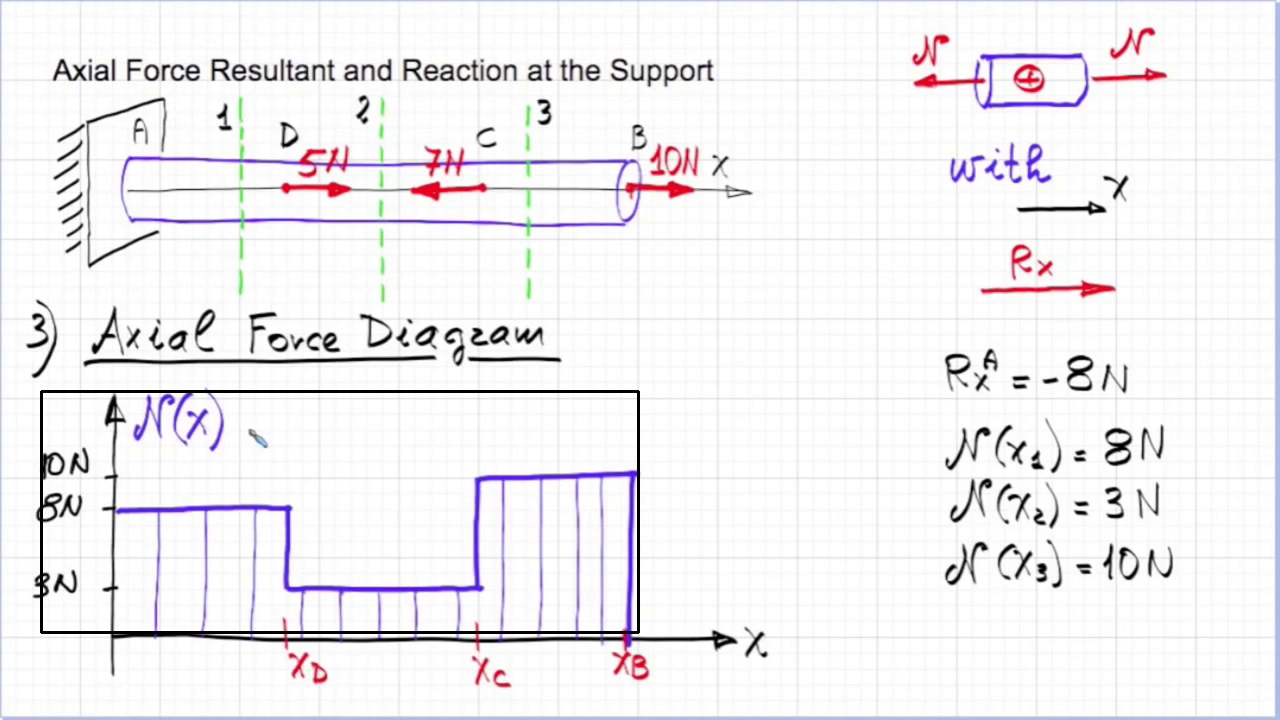 Axial Force Resultant and Reaction at the Support
N N
+
A 1 D 2 C 3 B
5N 7N 10N X
with
X
Rx
3) Axial Force Diagram
N(x)
10N
8N
3N
X
XD XC XB
RxA = -8N
N(x1) = 8N
N(x2) = 3N
N(x3) = 10N